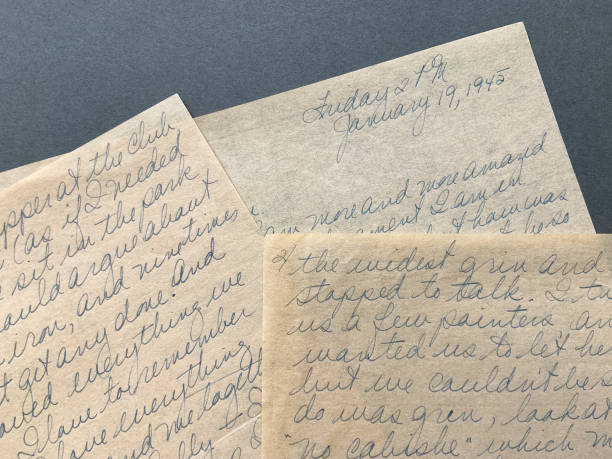 Friday 2 PM
January 19, 1945
am more and more amazed
I am in
how was
upper at the Club
(as if I needed
sit in the park
could argue about
iron, and ninetimes
t get any done. And
everything we
I love to remember
love everything
and me toget
2/ the widest grin and
stopped to talk. I t
us a few painters, an
wanted us to let he
but we couldn't
do was grin, look at
"no cabishe" which m